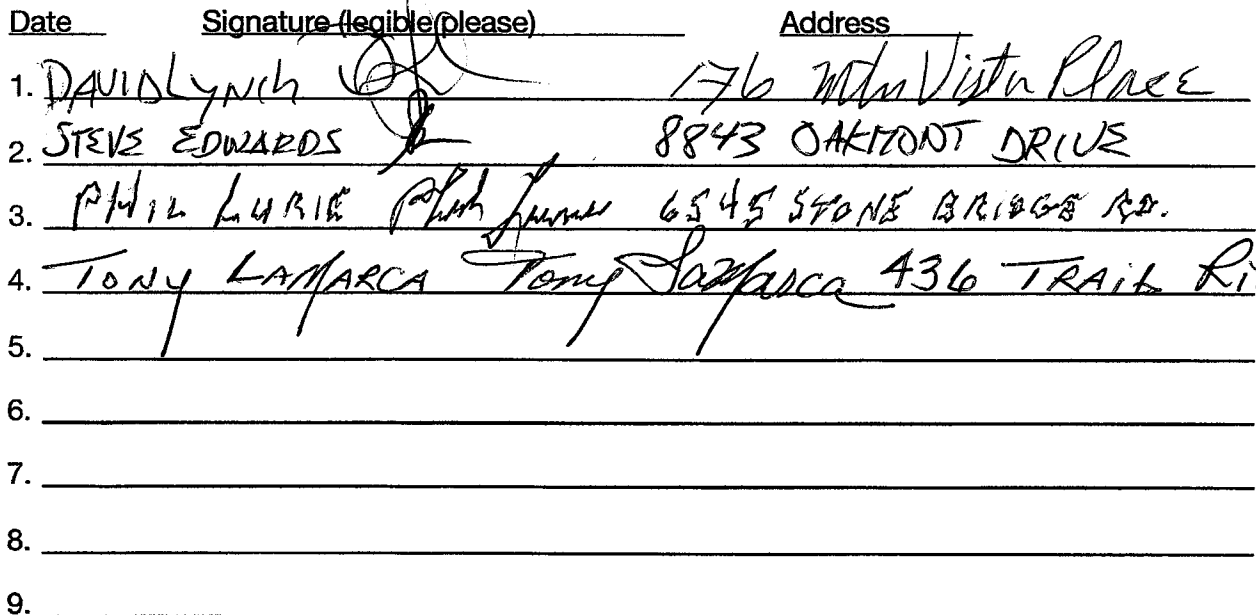 Date Signature (legible please) Address
1. DAVID LYNCH 176 Mtn Vista Place
2. STEVE EDWARDS 8843 OAKMONT DRIVE
3. PHIL LURIE 6545 STONE BRIDGE RD.
4. TONY LAMARCA Tony LaMarca 436 TRAIL Ri
5.
6.
7.
8.
9.